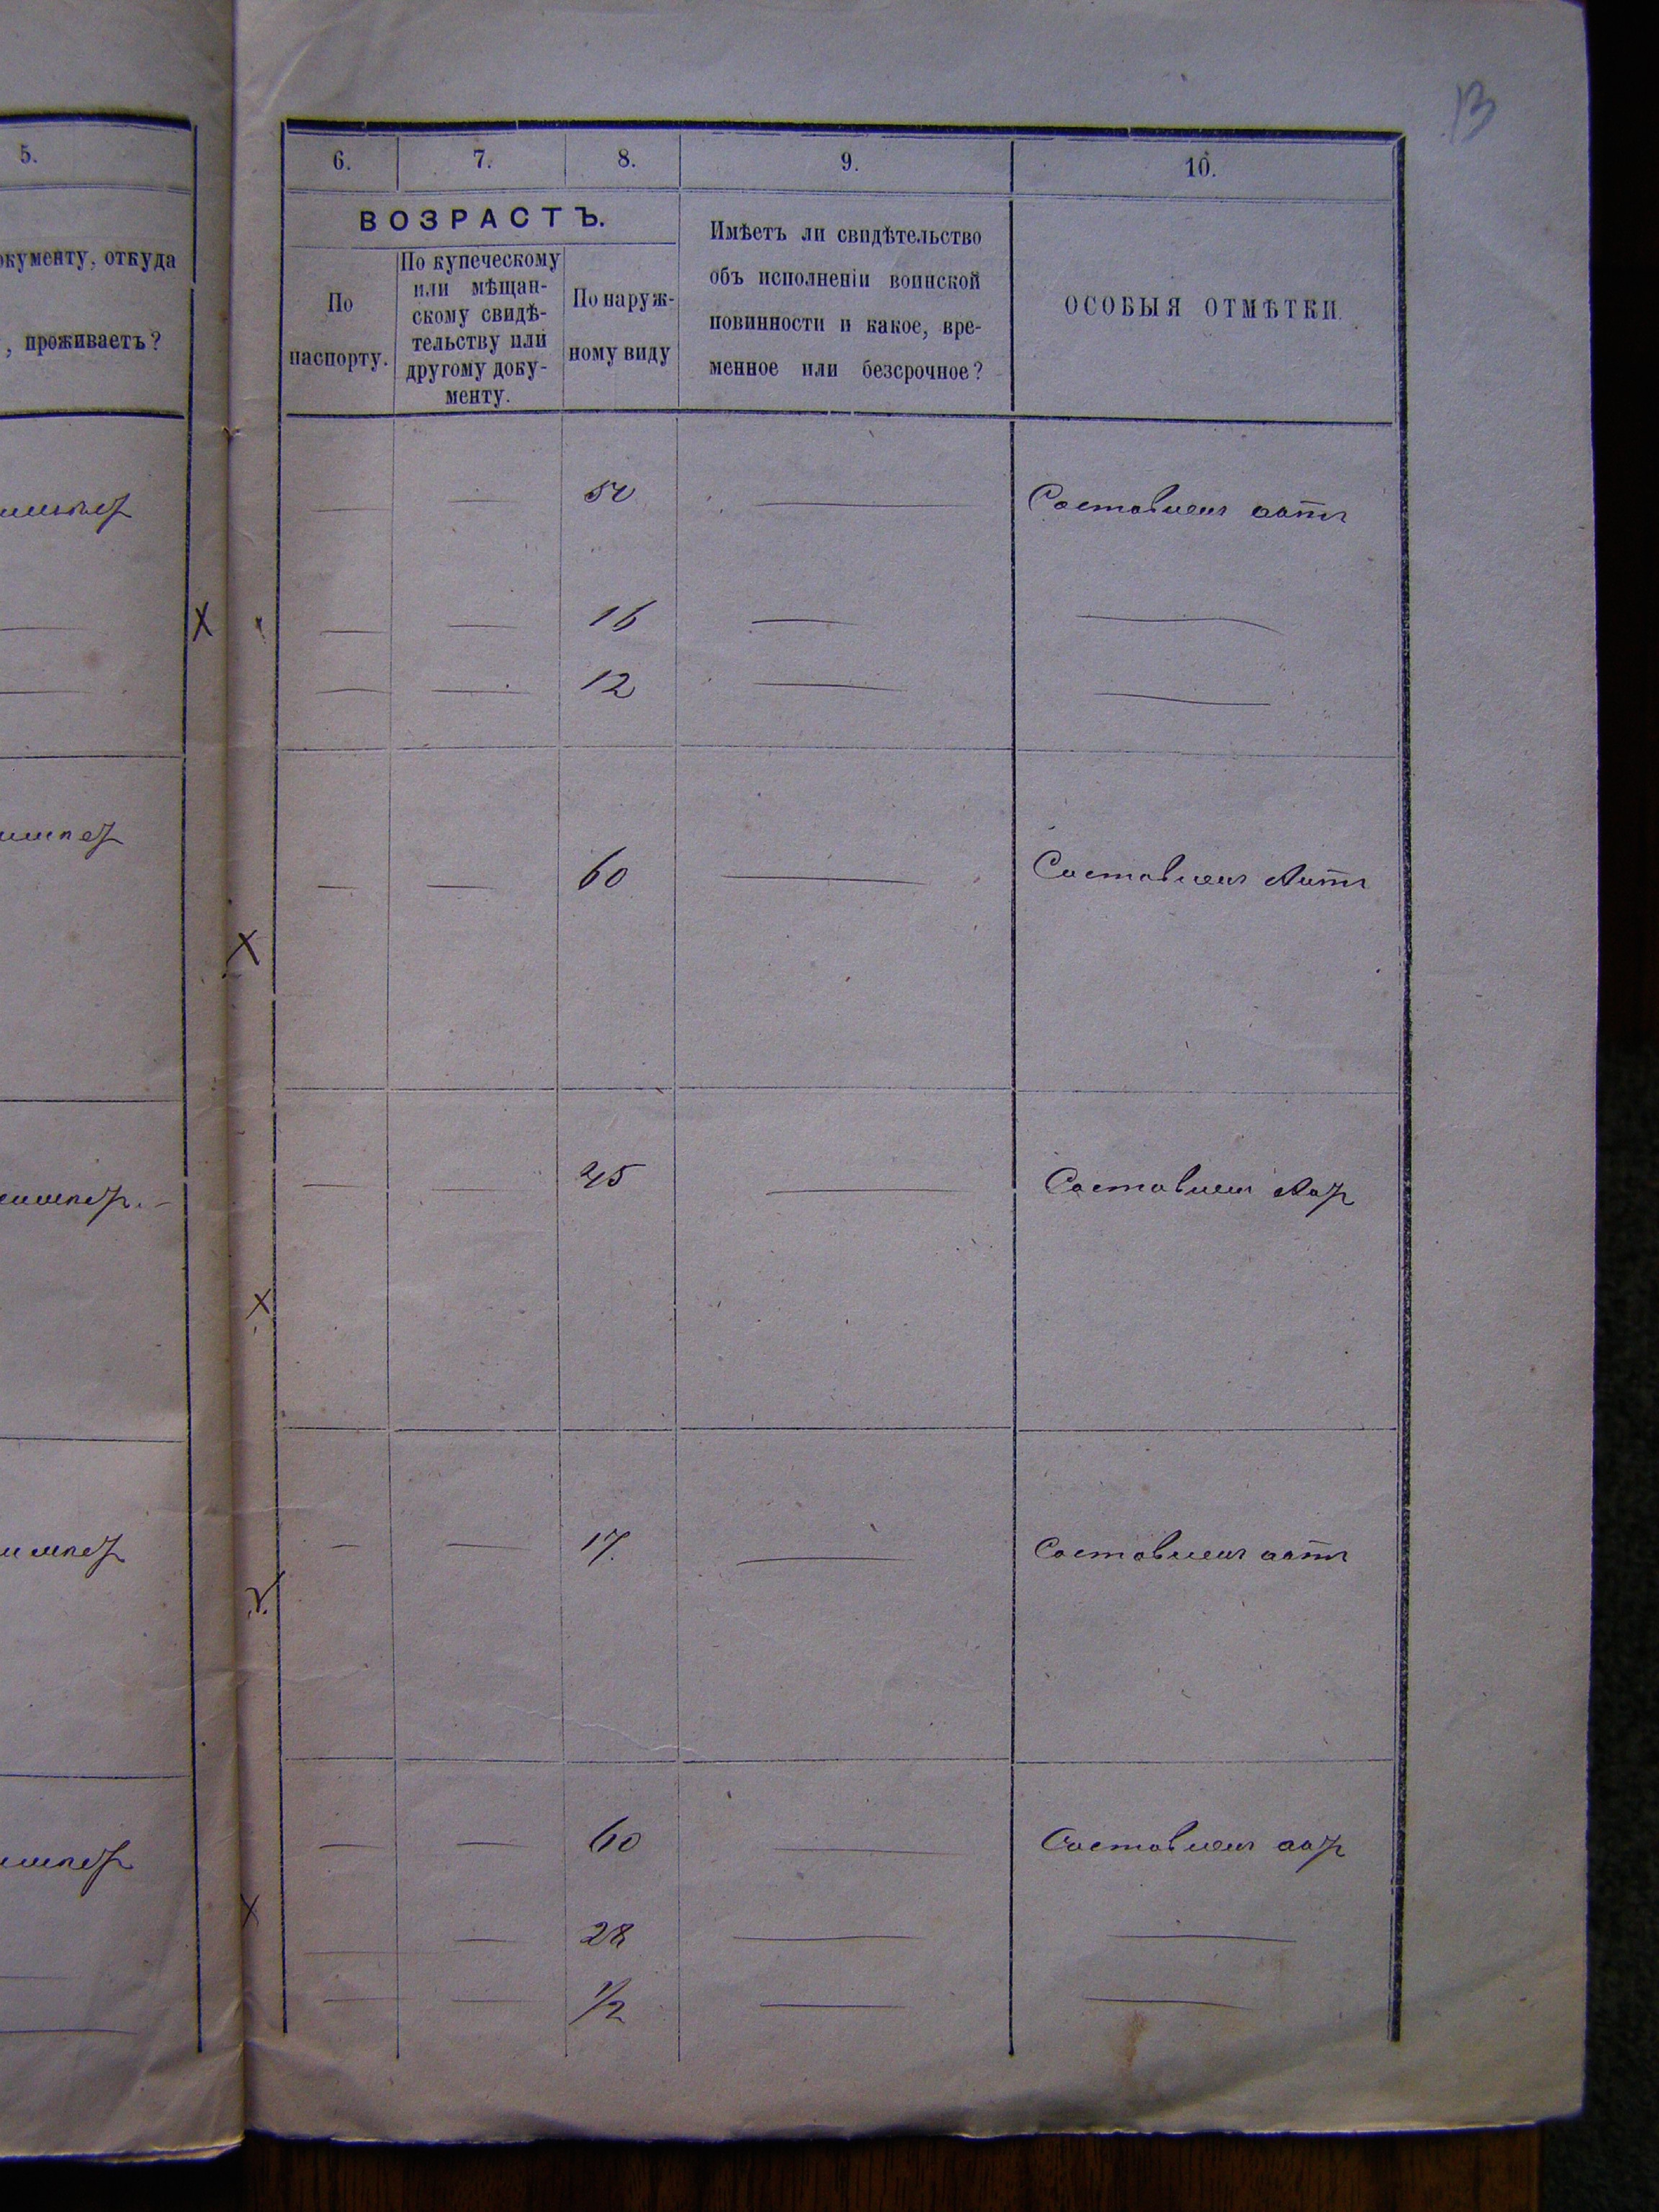 13
5.
6. 7. 8. 9. 10.
окументу, откуда
, проживаетъ?
ВОЗРАСТЪ.
По
паспорту.
По купеческому
или мѣщан-
скому свидѣ-
тельству или
другому доку-
менту.
По наруж-
ному виду
Имѣетъ ли свидѣтельство
объ исполненіи воинской
повинности и какое, вре-
менное или безсрочное?
ОСОБЫЯ ОТМѢТКИ.
Составленъ актъ
16
12
60 Составленъ Актъ
45 Составленъ Акт
17. Составленъ актъ
60 Составленъ акт
28
1/2